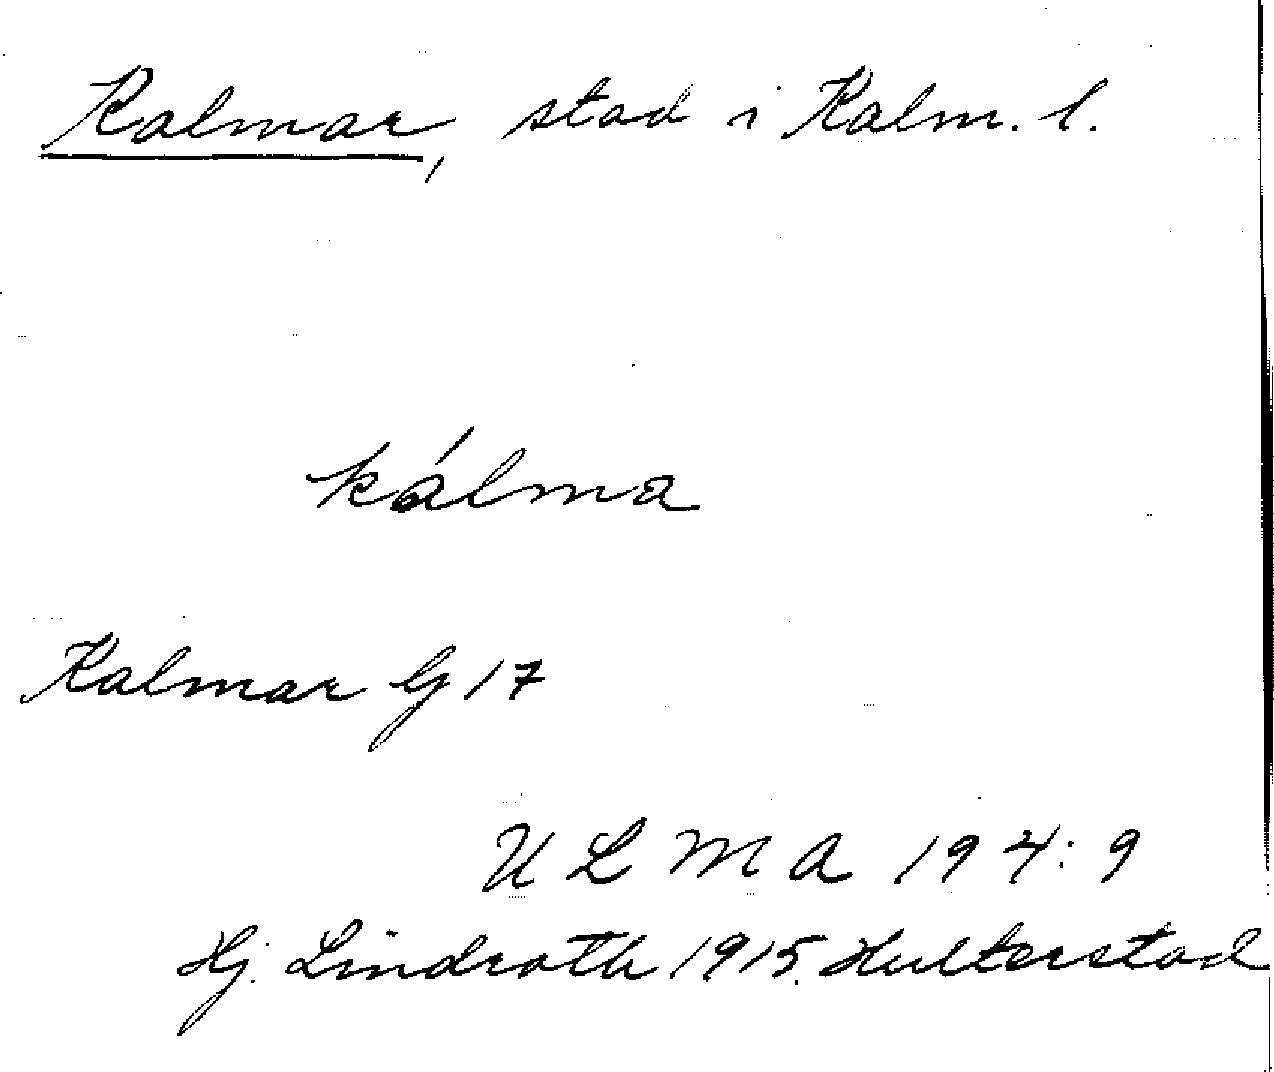 Kalmar, stad i Kalm. l.
kálma
Kalmar G 17
ULMA 194:9
Hj. Lindroth 1915. Hulterstad